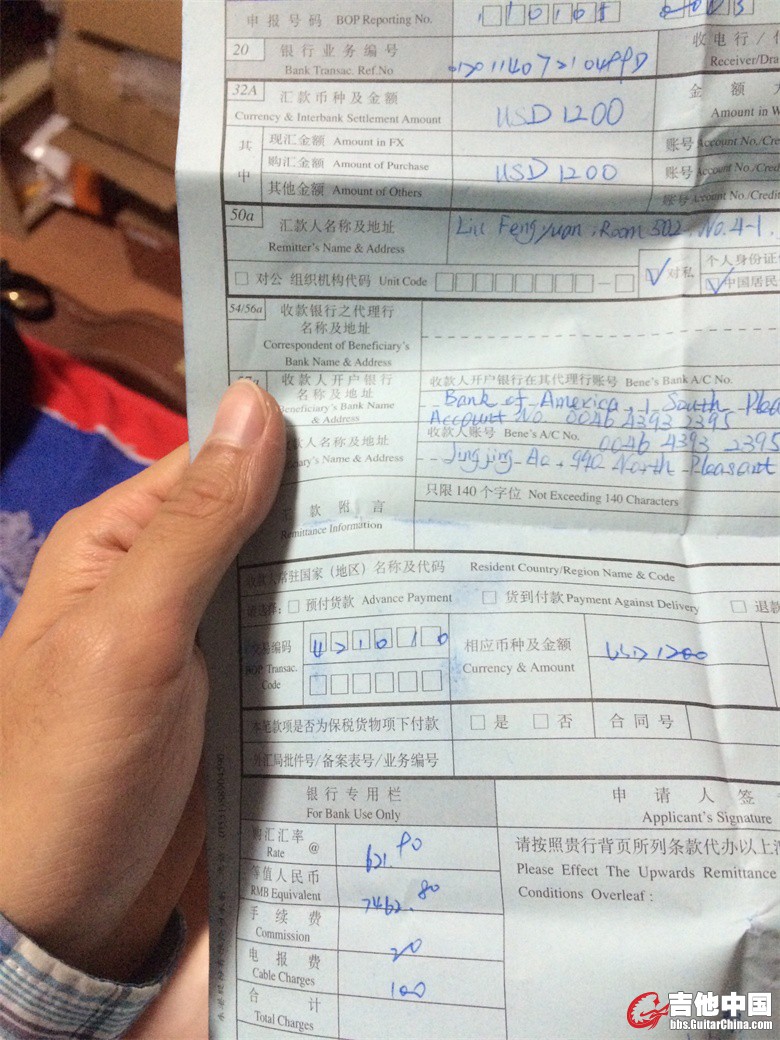 申报号码 BOP Reporting No.
20 银行业务编号
Bank Transac. Ref.No
收电行/
Receiver/Dra
32A 汇款币种及金额
Currency & Interbank Settlement Amount
USD 1200
金额大
Amount in W
其中
现汇金额 Amount in FX
账号 Account No./Cre
购汇金额 Amount of Purchase
USD 1200
账号 Account No./Credi
其他金额 Amount of Others
账号 Account No./Credi
50a 汇款人名称及地址
Remitter's Name & Address
Liu Fengyuan, Room 502, No. 4-1,
对公 组织机构代码 Unit Code
对私
个人身份证
中国居民
54/56a 收款银行之代理行
名称及地址
Correspondent of Beneficiary's
Bank Name & Address
收款人开户银行
名称及地址
Beneficiary's Bank Name
& Address
收款人开户银行在其代理行账号 Bene's Bank A/C No.
Bank of America, 1 South Plea
Account No. 0046 4393 2395
人名称及地址
ary's Name & Address
收款人账号 Bene's A/C No.
0046 4393 2395
Jingjing Ao, 990 North Pleasant
款附言
Remittance Information
只限140个字位 Not Exceeding 140 Characters
收款人常驻国家（地区）名称及代码 Resident Country/Region Name & Code
请选择： 预付货款 Advance Payment 货到付款 Payment Against Delivery 退款
交易编码
BOP Transac.
Code
相应币种及金额
Currency & Amount
USD 1200
本笔款项是否为保税货物项下付款 是 否 合同号
外汇局批件号/备案表号/业务编号
银行专用栏
For Bank Use Only
申请人签
Applicant's Signature
购汇汇率
Rate @
621.90
等值人民币
RMB Equivalent
7462.80
手续费
Commission
20
电报费
Cable Charges
100
合计
Total Charges
请按照贵行背页所列条款代办以上
Please Effect The Upwards Remittance
Conditions Overleaf :
吉他中国
bbs.GuitarChina.com